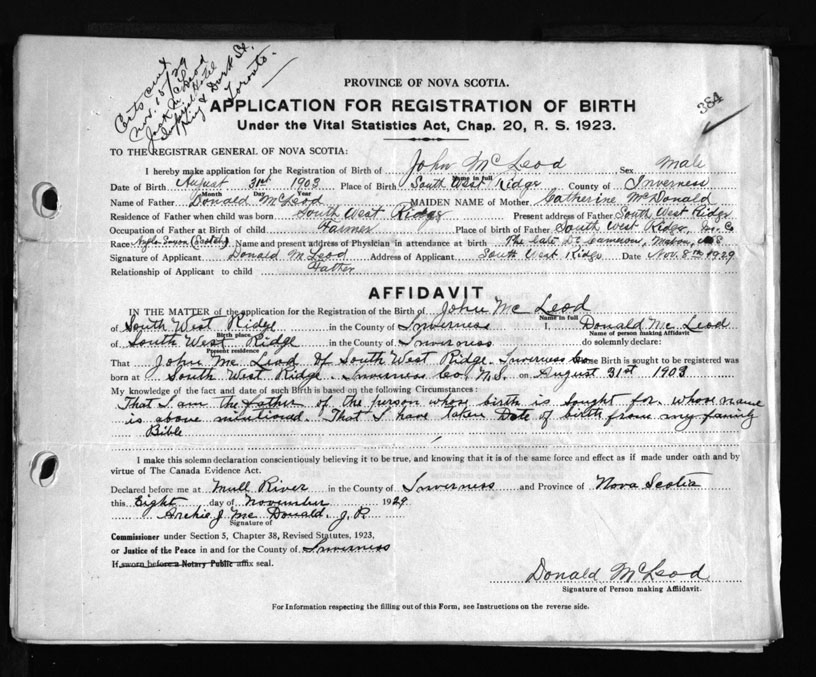 Certs out
Nov. 15/29
Jack McLeod
Hotel
King & York St.
Toronto.
384
PROVINCE OF NOVA SCOTIA.
APPLICATION FOR REGISTRATION OF BIRTH
Under the Vital Statistics Act, Chap. 20, R. S. 1923.
TO THE REGISTRAR GENERAL OF NOVA SCOTIA:
I hereby make application for the Registration of Birth of John McLeod Sex Male
Name in full
Date of Birth August 31st 1903 Place of Birth South West Ridge County of Inverness
Month Day Year
Name of Father Donald McLeod MAIDEN NAME of Mother Catherine McDonald
Residence of Father when child was born South West Ridge Present address of Father South West Ridge
Occupation of Father at Birth of child Farmer Place of birth of Father South West Ridge, Inv. Co
Race Anglo Saxon (Scotch) Name and present address of Physician in attendance at birth The late Dr Cameron, Mabou, N S
Signature of Applicant Donald McLeod Address of Applicant South West Ridge Date Nov. 8th 1929
Relationship of Applicant to child Father
AFFIDAVIT
IN THE MATTER of the application for the Registration of the Birth of John McLeod
Name in full
of South West Ridge in the County of Inverness I, Donald McLeod
Birth place Name of person making Affidavit
of South West Ridge in the County of Inverness do solemnly declare:
Present residence
That John McLeod Of South West Ridge. Inverness Co whose Birth is sought to be registered was
born at South West Ridge. Inverness Co, N.S. on August 31st 1903
My knowledge of the fact and date of such Birth is based on the following Circumstances:
That I am the Father of the person whose birth is sought for whose name
is above mentioned. That I have taken Date of birth from my family
Bible
I make this solemn declaration conscientiously believing it to be true, and knowing that it is of the same force and effect as if made under oath and by
virtue of The Canada Evidence Act.
Declared before me at Mull River in the County of Inverness and Province of Nova Scotia
this Eight day of November 1929
Archie J. McDonald, J. P.
Signature of
Commissioner under Section 5, Chapter 38, Revised Statutes, 1923,
or Justice of the Peace in and for the County of Inverness
If sworn before a Notary Public affix seal.
Donald McLeod
Signature of Person making Affidavit.
For Information respecting the filling out of this Form, see Instructions on the reverse side.